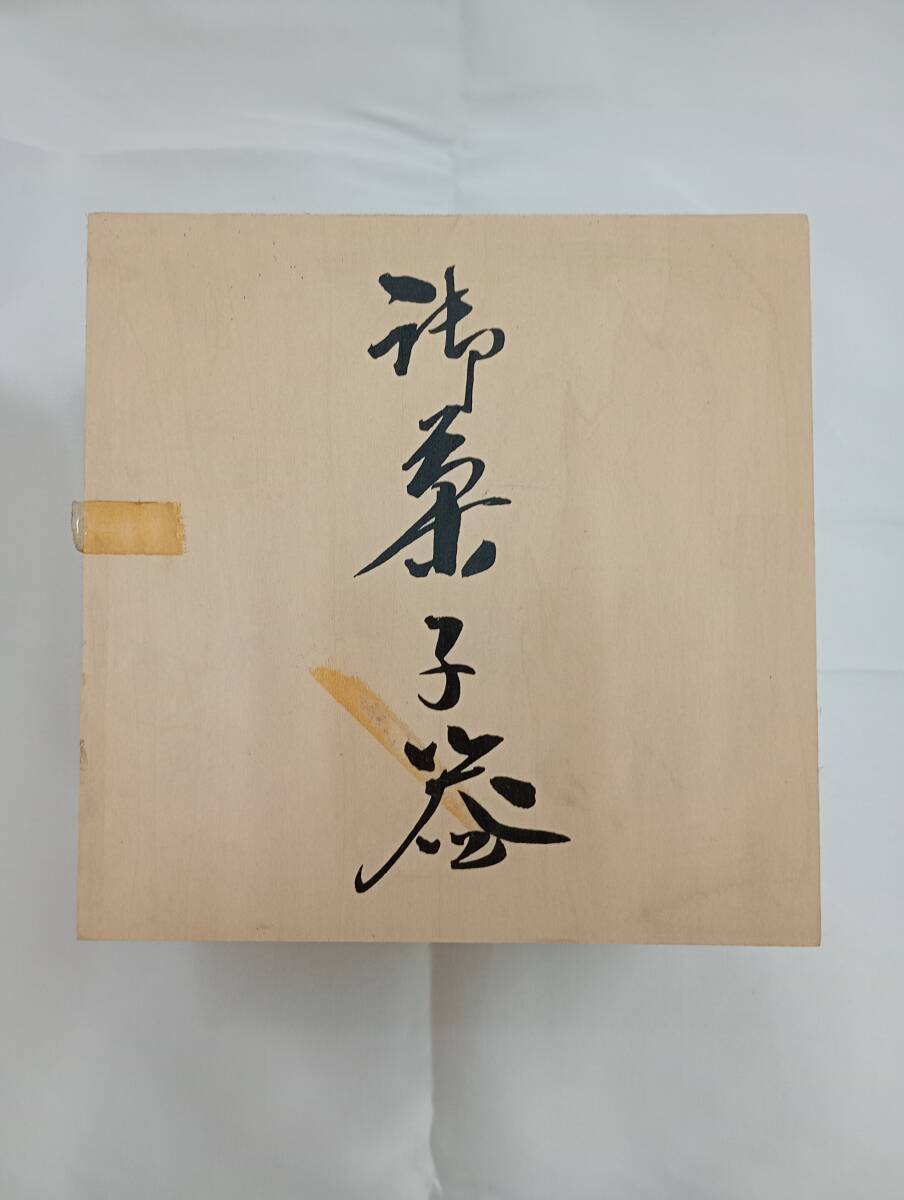 御菓子器